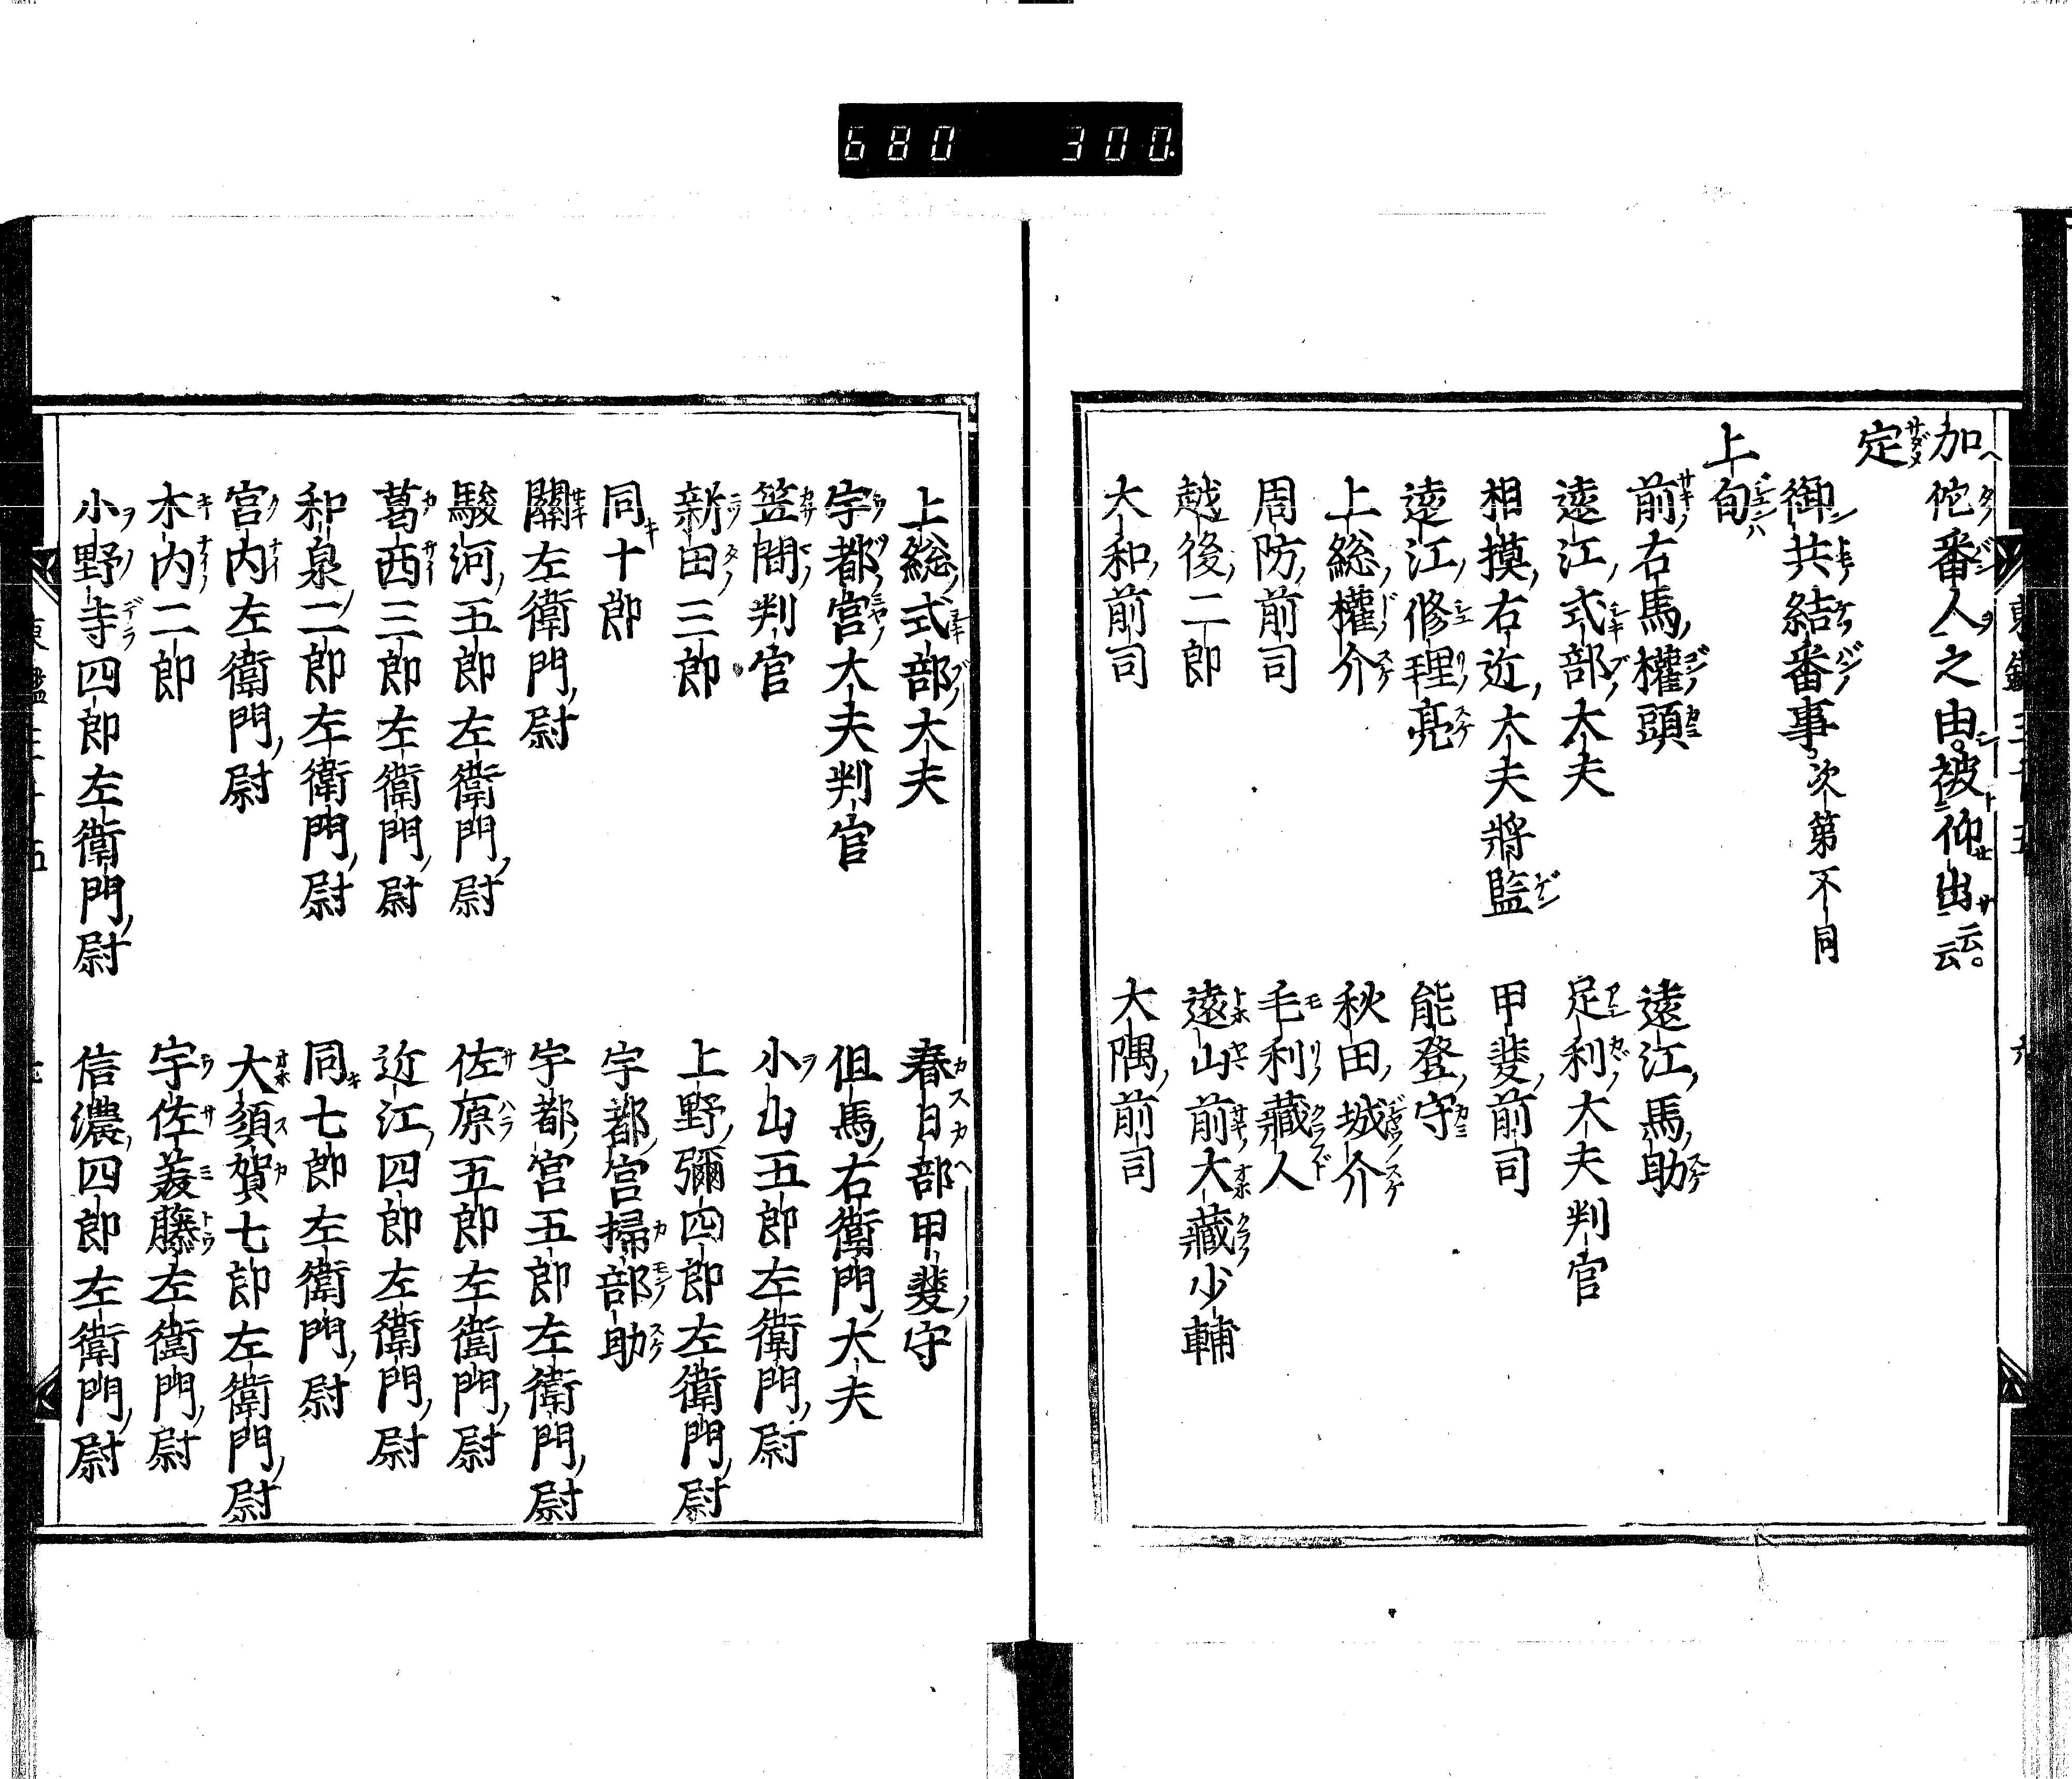 680 300
加佗番人之由。被仰出云云。
定
御共結番事。次第不同
上旬
前右馬權頭 遠江馬助
遠江式部大夫 足利大夫判官
相摸右近大夫將監 甲斐前司
遠江修理亮 能登守
上総權介 秋田城介
周防前司 毛利藏人
越後二郎 遠山前大藏少輔
大和前司 大隅前司
上総式部大夫 春日部甲斐守
宇都宮大夫判官 但馬右衛門大夫
笠間判官 小山五郎左衛門尉
新田三郎 上野彌四郎左衛門尉
同十郎 宇都宮掃部助
關左衛門尉 宇都宮五郎左衛門尉
駿河五郎左衛門尉 佐原五郎左衛門尉
葛西三郎左衛門尉 近江四郎左衛門尉
和泉二郎左衛門尉 同七郎左衛門尉
宮内左衛門尉 大須賀七郎左衛門尉
木内二郎 宇佐美藤左衛門尉
小野寺四郎左衛門尉 信濃四郎左衛門尉